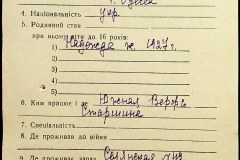 г. Одесса
4. Національність укр.
5. Родинний стан
при ньому діти до 16 років:
1) Надежда ж. 1927 г.
2)
3)
4)
5)
6. Ким працює і де Южная Верфь
Старшина
7. Спеціальність
8. Де проживав до війни
9. Де проживає зараз